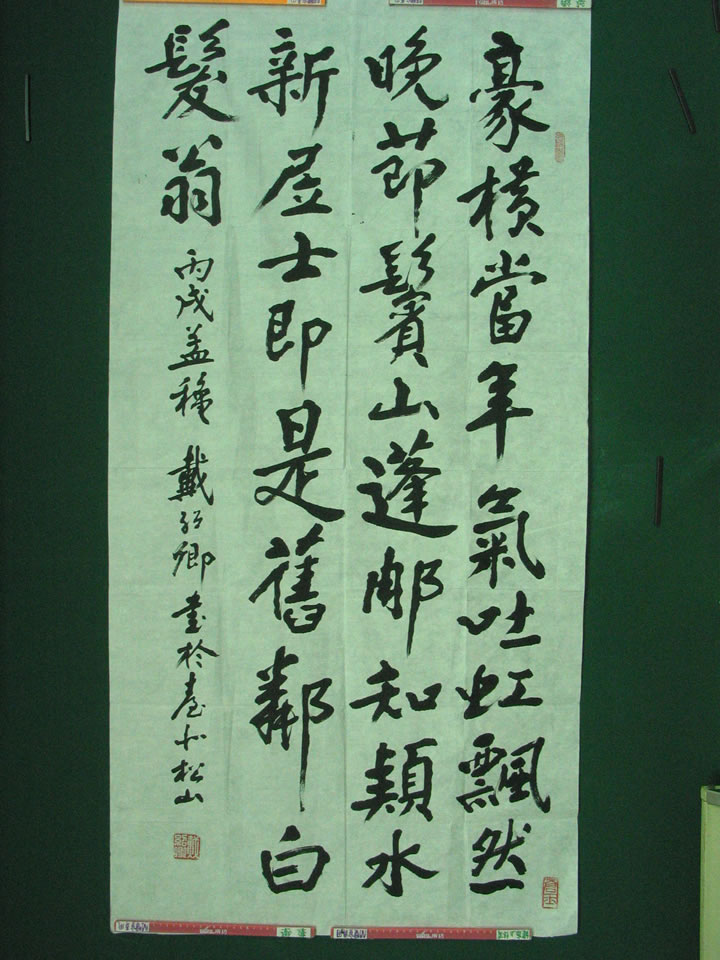 豪橫當年氣吐虹飄然
晚節鬢山蓬那知頴水
新居士即是舊鄰白
髮翁
丙戌孟穐 戴卿 書於臺北松山